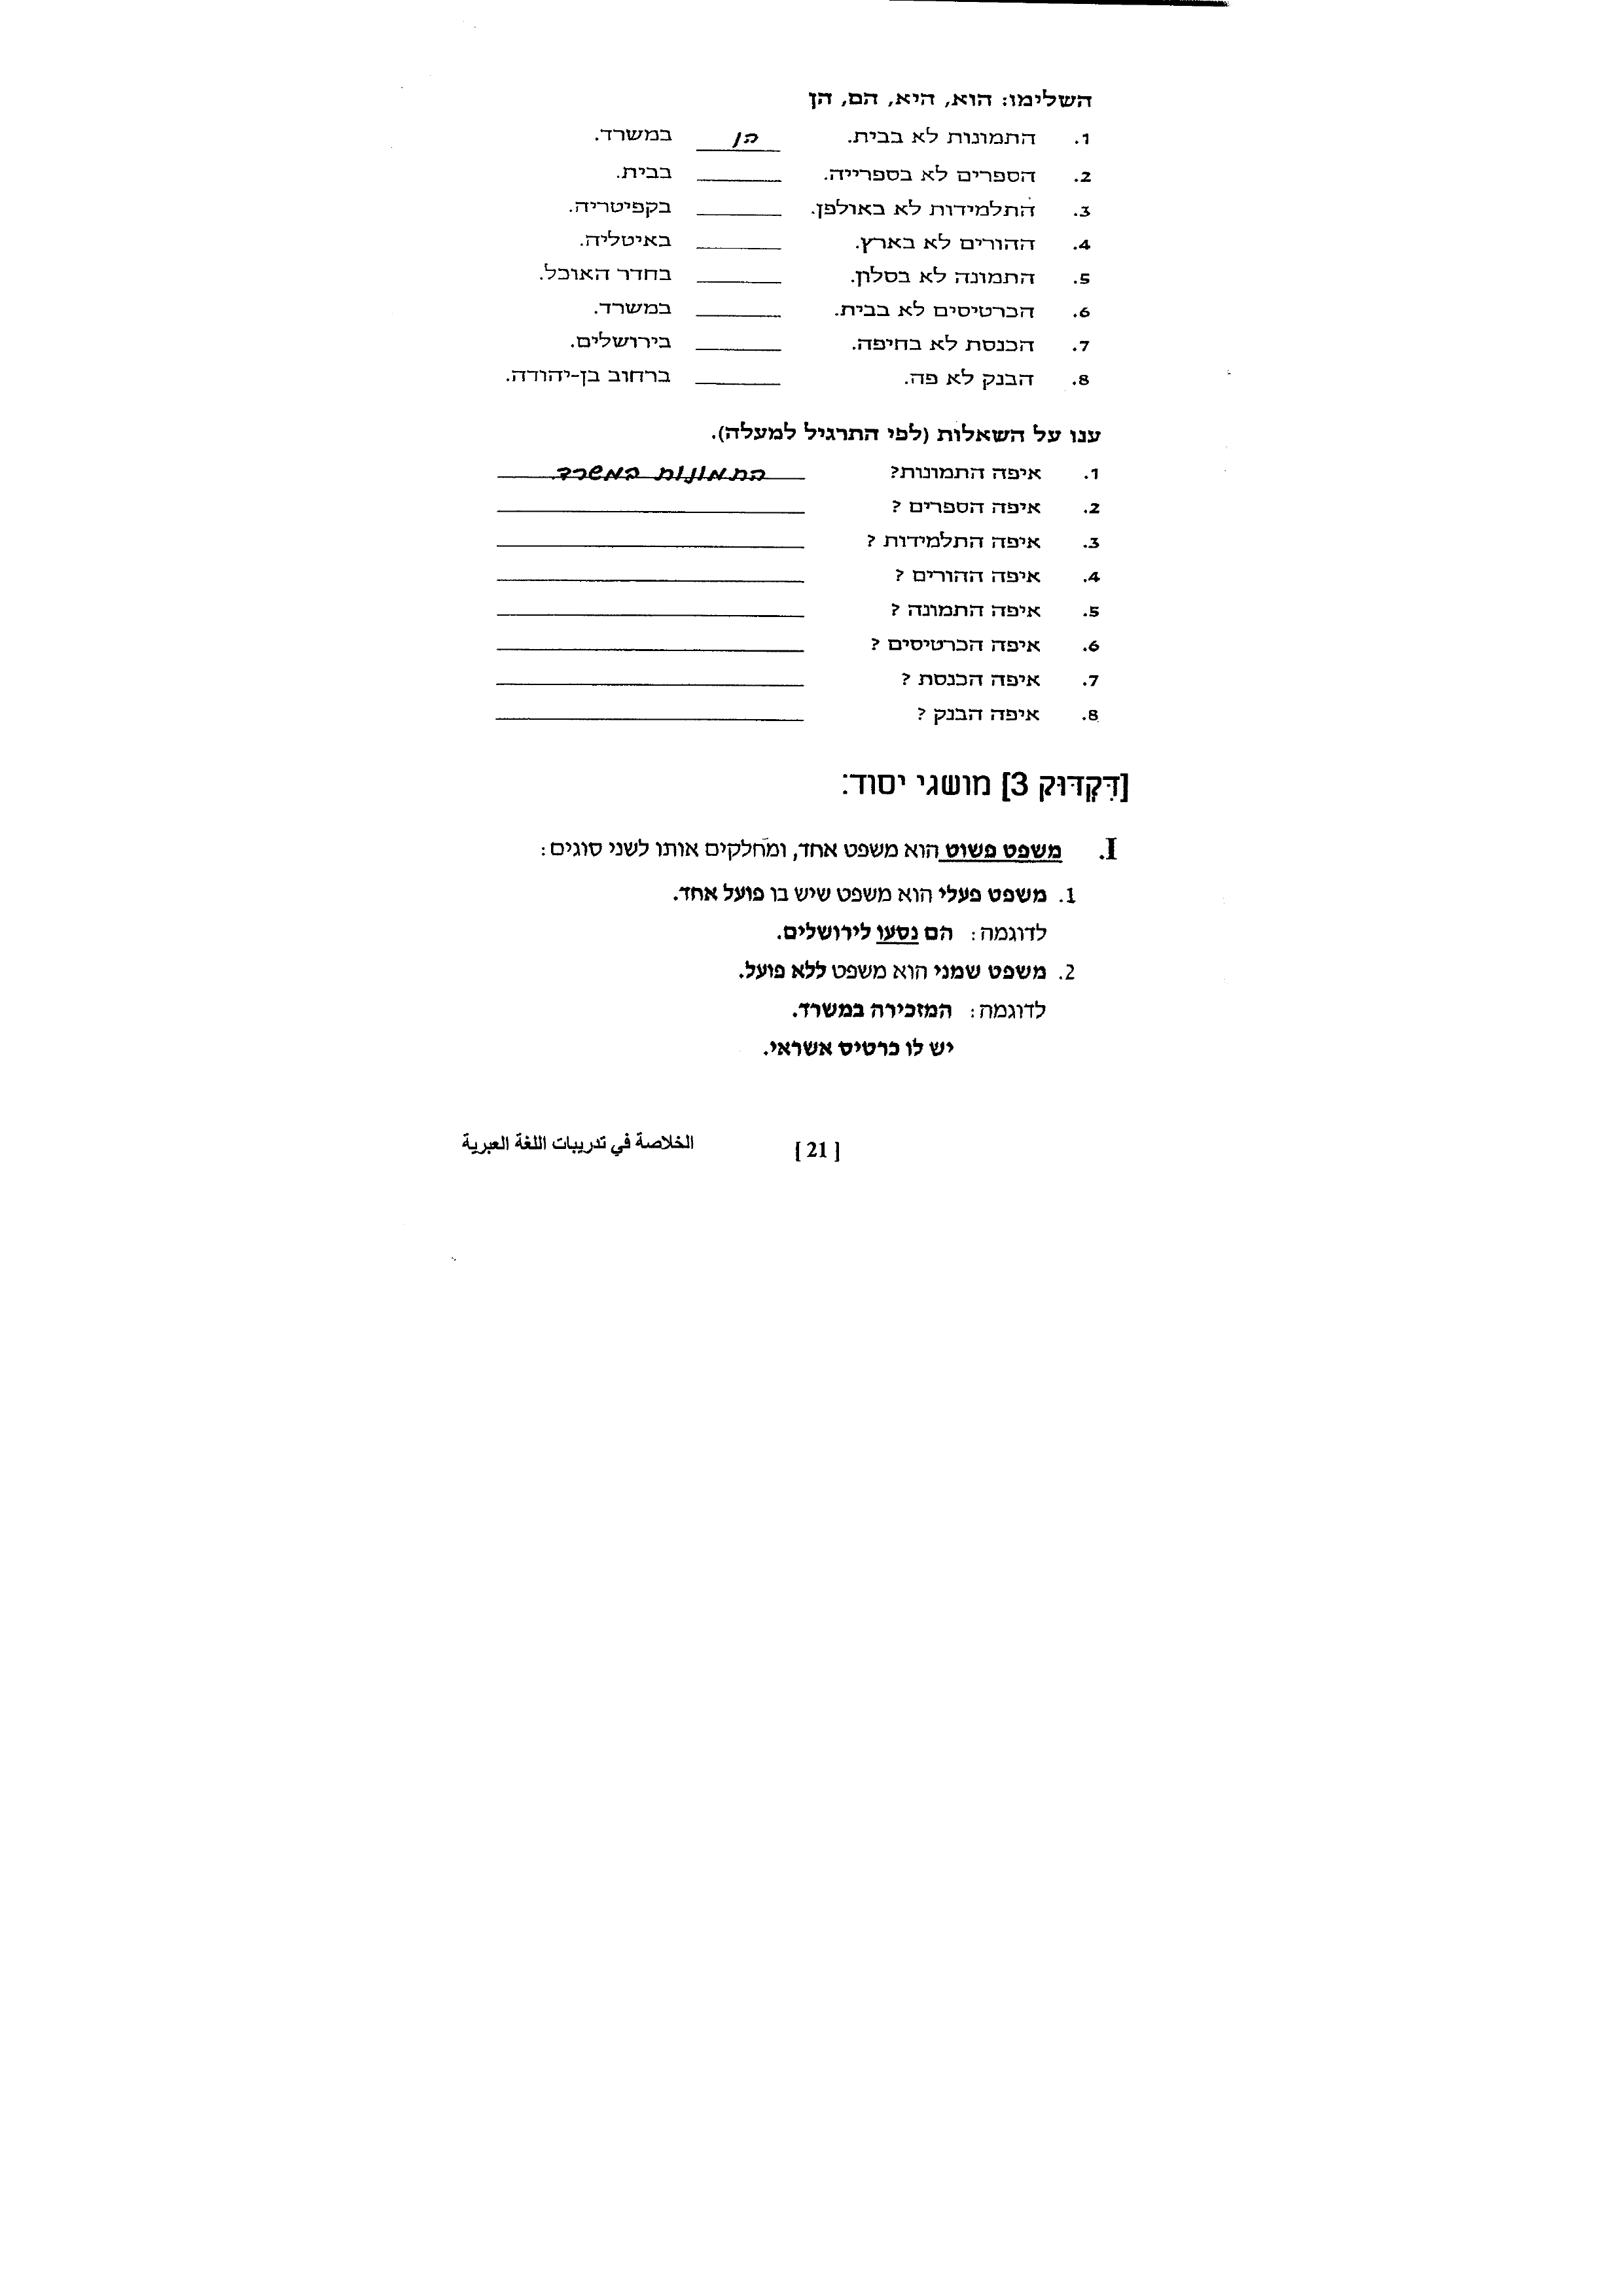 השלימו: הוא, היא, הם, הן
1. התמונות לא בבית. הן במשרד.
2. הספרים לא בספרייה. ______ בבית.
3. התלמידות לא באולפן. ______ בקפיטריה.
4. ההורים לא בארץ. ______ באיטליה.
5. התמונה לא בסלון. ______ בחדר האוכל.
6. הכרטיסים לא בבית. ______ במשרד.
7. הכנסת לא בחיפה. ______ בירושלים.
8. הבנק לא פה. ______ ברחוב בן-יהודה.
ענו על השאלות (לפי התרגיל למעלה).
1. איפה התמונות? התמונות במשרד.
2. איפה הספרים ?
3. איפה התלמידות ?
4. איפה ההורים ?
5. איפה התמונה ?
6. איפה הכרטיסים ?
7. איפה הכנסת ?
8. איפה הבנק ?
[דִּקְדּוּק 3] מושגי יסוד:
I. משפט פשוט הוא משפט אחד, ומחלקים אותו לשני סוגים:
1. משפט פעלי הוא משפט שיש בו פועל אחד.
לדוגמה: הם נסעו לירושלים.
2. משפט שמני הוא משפט ללא פועל.
לדוגמה: המזכירה במשרד.
יש לו כרטיס אשראי.
[ 21 ] الخلاصة في تدريبات اللغة العبرية